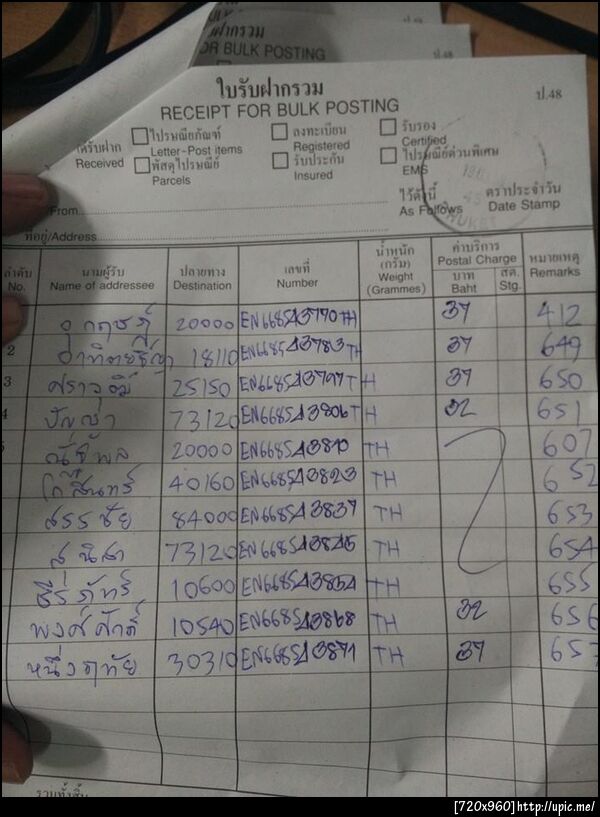 ากรวม
ฝากรวม
OR BULK POSTING
ป.48
ใบรับฝากรวม
RECEIPT FOR BULK POSTING
ป.48
ได้รับฝาก
Received
ไปรษณียภัณฑ์
Letter-Post items
พัสดุไปรษณีย์
Parcels
ลงทะเบียน
Registered
รับประกัน
Insured
รับรอง
Certified
ไปรษณีย์ด่วนพิเศษ
EMS
From
ไว้ดังนี้
As Follows
ตราประจำวัน
Date Stamp
ที่อยู่/Address
ลำดับ No. นามผู้รับ Name of addressee ปลายทาง Destination เลขที่ Number น้ำหนัก (กรัม) Weight (Grammes) ค่าบริการ Postal Charge บาท Baht สต. Stg. หมายเหตุ Remarks
20000 EN668543770TH 37 412
2 อาทิตยธิญา 18110 EN668543783TH 37 649
3 ศราวุฒิ 25150 EN668543797TH 37 650
4 ปัญญา 73120 EN668543806TH 32 651
5 ณัชพล 20000 EN668543810 TH 607
โกสินทร์ 40160 EN668543823 TH 652
สรรชัย 84000 EN668543837 TH 653
สนิสา 73120 EN668543845 TH 654
ธีร์ภัทร์ 10600 EN668543854 TH 655
พงศ์ศักดิ์ 10540 EN668543868 TH 32 656
หนึ่งฤทัย 30310 EN668543871 TH 37 657
รวมทั้งสิ้น
[720x960]http://upic.me/